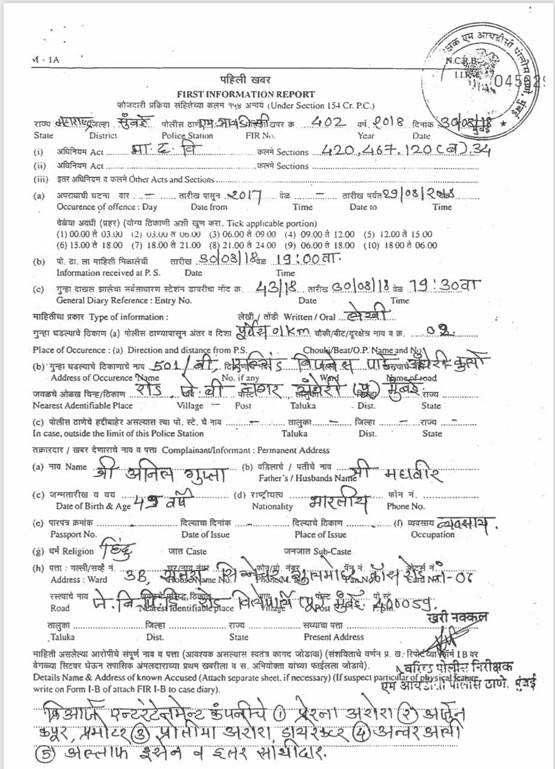 M - 1A
पहिली खबर
FIRST INFORMATION REPORT
फौजदारी प्रक्रिया संहितेच्या कलम १५४ अन्वये (Under Section 154 Cr. P.C.)
राज्य महाराष्ट्र जिल्हा मुंबई पोलीस ठाणे एम आय डी सी खबर क्र. 402 वर्ष 2018 दिनांक 30/08/18
State District Police Station FIR No. Year Date
(i) अधिनियम Act भा. द. वि कलमे Sections 420, 467, 120(ब), 34
(ii) अधिनियम Act कलमे Sections
(iii) इतर अधिनियम व कलमे Other Acts and Sections
(a) अपराधाची घटना वार - तारीख पासून 2017 वेळ - तारीख पर्यंत 29/08/2018
Occurence of offence : Day Date from Time Date to Time
वेळेचा अवधी (प्रहर) (योग्य ठिकाणी अशी खूण करा. Tick applicable portion)
(1) 00.00 ते 03.00 (2) 03.00 ते 06.00 (3) 06.00 ते 09.00 (4) 09.00 ते 12.00 (5) 12.00 ते 15.00
(6) 15.00 ते 18.00 (7) 18.00 ते 21.00 (8) 21.00 ते 24.00 (9) 06.00 ते 18.00 (10) 18.00 ते 06.00
(b) पो. ठा. ला माहिती मिळालेची तारीख 30/08/18 वेळ 19:00 वा.
Information received at P. S. Date Time
(c) गुन्हा दाखल झालेचा सर्वसाधारण स्टेशन डायरीचा नोंद क्र. 43/18 तारीख 30/08/18 वेळ 19:30 वा
General Diary Reference : Entry No. Date Time
माहितीचा प्रकार Type of information : लेखी / तोंडी Written / Oral लेखी
गुन्हा घडल्याचे ठिकाण (a) पोलीस ठाण्यापासून अंतर व दिशा पूर्वेस 01km चौकी/बीट/दूरक्षेत्र नाव व क्र. 02
Place of Occurence : (a) Direction and distance from P.S. Chouki/Beat/O.P. Name and No.
(b) गुन्हा घडल्याचे ठिकाणाचे नाव 501/बी, अंधेरी कुर्ला
Address of Occurence Name No. if any Word Name of road
जवळचे ओळख चिन्ह/ठिकाण रोड जे. बी. नगर अंधेरी (पू) मुंबई.
Nearest Adentifiable Place Village - Post Taluka Dist. State
(c) पोलीस ठाणेचे हद्दीबाहेर असल्यास त्या पो. स्टे. चे नाव - तालुका - जिल्हा - राज्य -
In case, outside the limit of this Police Station Taluka Dist. State
तक्रारदार / खबर देणाराचे नाव व पत्ता Complainant/Informant : Permanent Address
(a) नाव Name श्री अनिल गुप्ता (b) वडिलांचे / पतीचे नाव श्री महावीर
Father's / Husbands Name
(c) जन्मतारीख व वय 49 वर्षे (d) राष्ट्रीयत्व भारतीय फोन नं.
Date of Birth & Age Nationality Phone No.
(e) पारपत्र क्रमांक दिल्याचा दिनांक दिल्याचे ठिकाण (f) व्यवसाय व्यवसाय.
Passport No. Date of Issue Place of Issue Occupation
(g) धर्म Religion हिंदु जात Caste जनजात Sub-Caste
(h) पत्ता : गल्ली/सर्व्हे नं. 3B, क्रॉस रोड नं-06
Address : Ward
रस्त्याचे नाव मुंबई 400059.
Road Nearest Identifiable place
खरी नक्कल
तालुका जिल्हा राज्य सध्याचा पत्ता
Taluka Dist. State Present Address
माहिती असलेल्या आरोपींचे संपूर्ण नाव व पत्ता (आवश्यक असल्यास स्वतंत्र कागद जोडावा)
वरिष्ठ पोलीस निरीक्षक
एम आयडीसी पोलीस ठाणे, मुंबई
Details Name & Address of known Accused (Attach separate sheet, if necessary) (If suspect particular of physical feature
write on Form I-B of attach FIR I-B to case diary).
क्रिआर्ज एन्टरटेनमेन्ट कंपनीचे ① प्रेरना अरोरा ② अर्जुन
कपूर, प्रमोटर ③ प्रोतीमा अरोरा, डायरेक्टर ④ अन्वर अली
⑤ अल्ताफ हुसेन व इतर साथीदार.